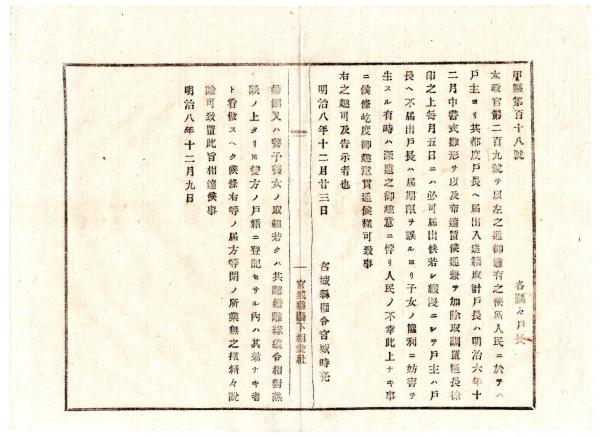 甲第百十八號
各區々戸長
太政官第二百九號ヲ以左之通御達有之候所人民ニ於テハ
戸主ヨリ其都度戸長ヘ届出入送籍取計戸長ハ明治六年十
二月中書式雛形ヲ以及布達置候通兼テ加除取調置區長
印之上毎月五日ニハ必可届出候若シ緩漫ニシテ戸主ハ戸
長ヘ不届出戸長ハ届期限ヲ誤ルヨリ子女ノ權利ニ妨害ヲ
生スル有時ハ深遠之御趣意ニ悖リ人民ノ不幸此上ナキ事
ニ候條屹度御趣意貫通候樣可致事
右之趣可及告示者也
明治八年十二月廿三日
宮城縣權令宮城時亮
婚姻又ハ養子養女ノ取組若クハ其離婚離縁縱令相對熟
談ノ上タリトモ雙方ノ戸籍ニ登記セサル内ハ其効ナキ者
ト看做スヘク候條右等ノ届方等閑ノ所業無之樣精々説
諭可致置此旨相達候事
明治八年十二月九日